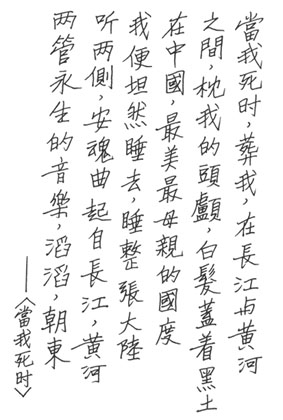 當我死时，葬我，在長江与黄河
之間，枕我的頭顱，白髮蓋着黑土
在中國，最美最母親的國度
我便坦然睡去，睡整張大陸
听两側，安魂曲起自長江，黄河
两管永生的音樂，滔滔，朝東
——《當我死时》